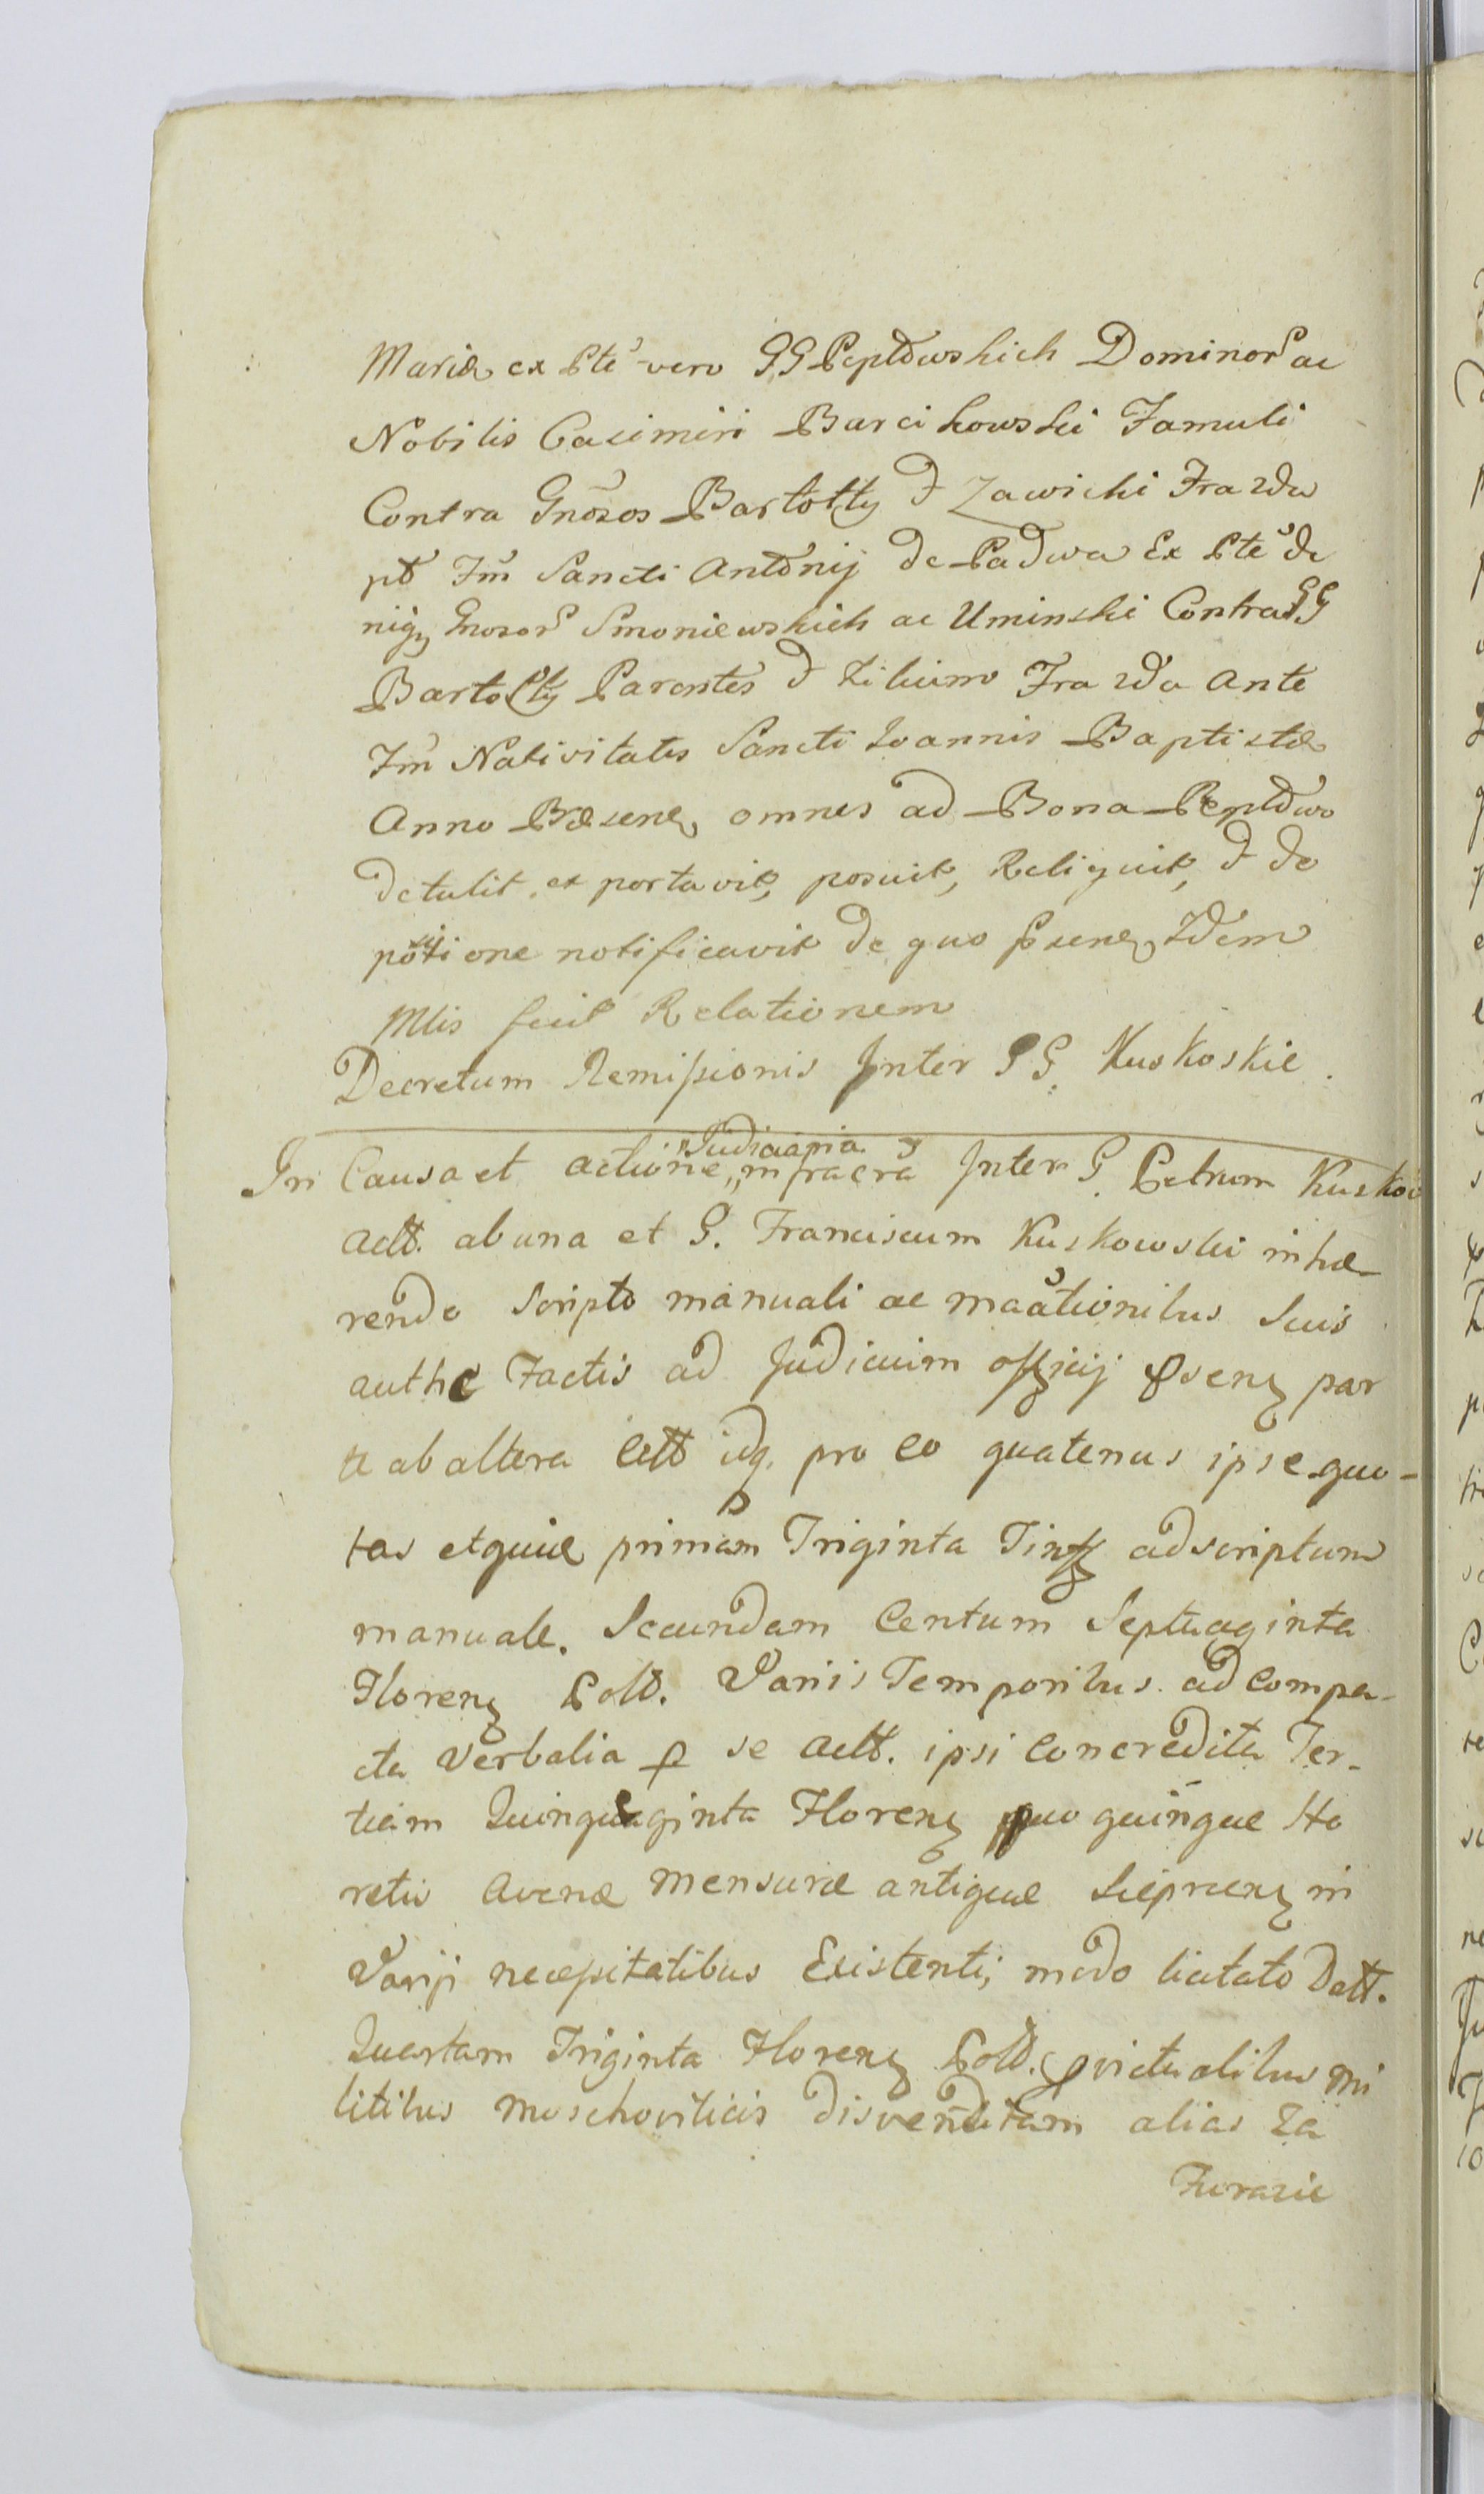 Mariæ ex Pte vero GG Peptowskich Dominor ac
Nobilis Casimiri Barcikowski Famuli
Contra Gnosos Bartołty & Zawicki Fra 2da
pt Fm Sancti Antonij de Padwa Ex Pte de
niq Gnosor Smoniewskich ac Uminski Contra GG
Bartołty Parentes & Filium Fra 2da Ante
Fm Nativitatis Sancti Ioannis Baptistæ
Anno Præsene omnes ad Bona Peptowo
detulit, et portavit, posuit, Reliquit, & de
positione notificavit de quo Psene Idem
Mlis fecit Relationem
Decretum Remissionis Inter GG. Kuskoskie.
In Causa et actione „Judiciaria „infracra Inter G. Petrum Kuskow
actt. ab una et G. Franciscum Kuskowski inhæ-
rendo Scripto manuali ac maationibus Suis
authe Factis ad Judicium officij Psene par
te ab altera Citt idq. pro eo quatenus ipse quo-
tas et quidem primam Triginta Tinff ad scriptum
manuale. Secundam Centum Septuaginta
Floreng Poll. Variis Temporibus ad Compa-
cta Verbalia p se actt. ipsi Concredita Ter-
tiam Quinquaginta Floreng quo quinque Ho
retis Avenæ Mensuræ antiquæ Sieprceng in
Varijs necessitatibus Existenti, modo licitato Datt.
Quartam Triginta Floreng Poll. p victualibus mi
litibus Moschoviticis disvenditam alias za
Furazie